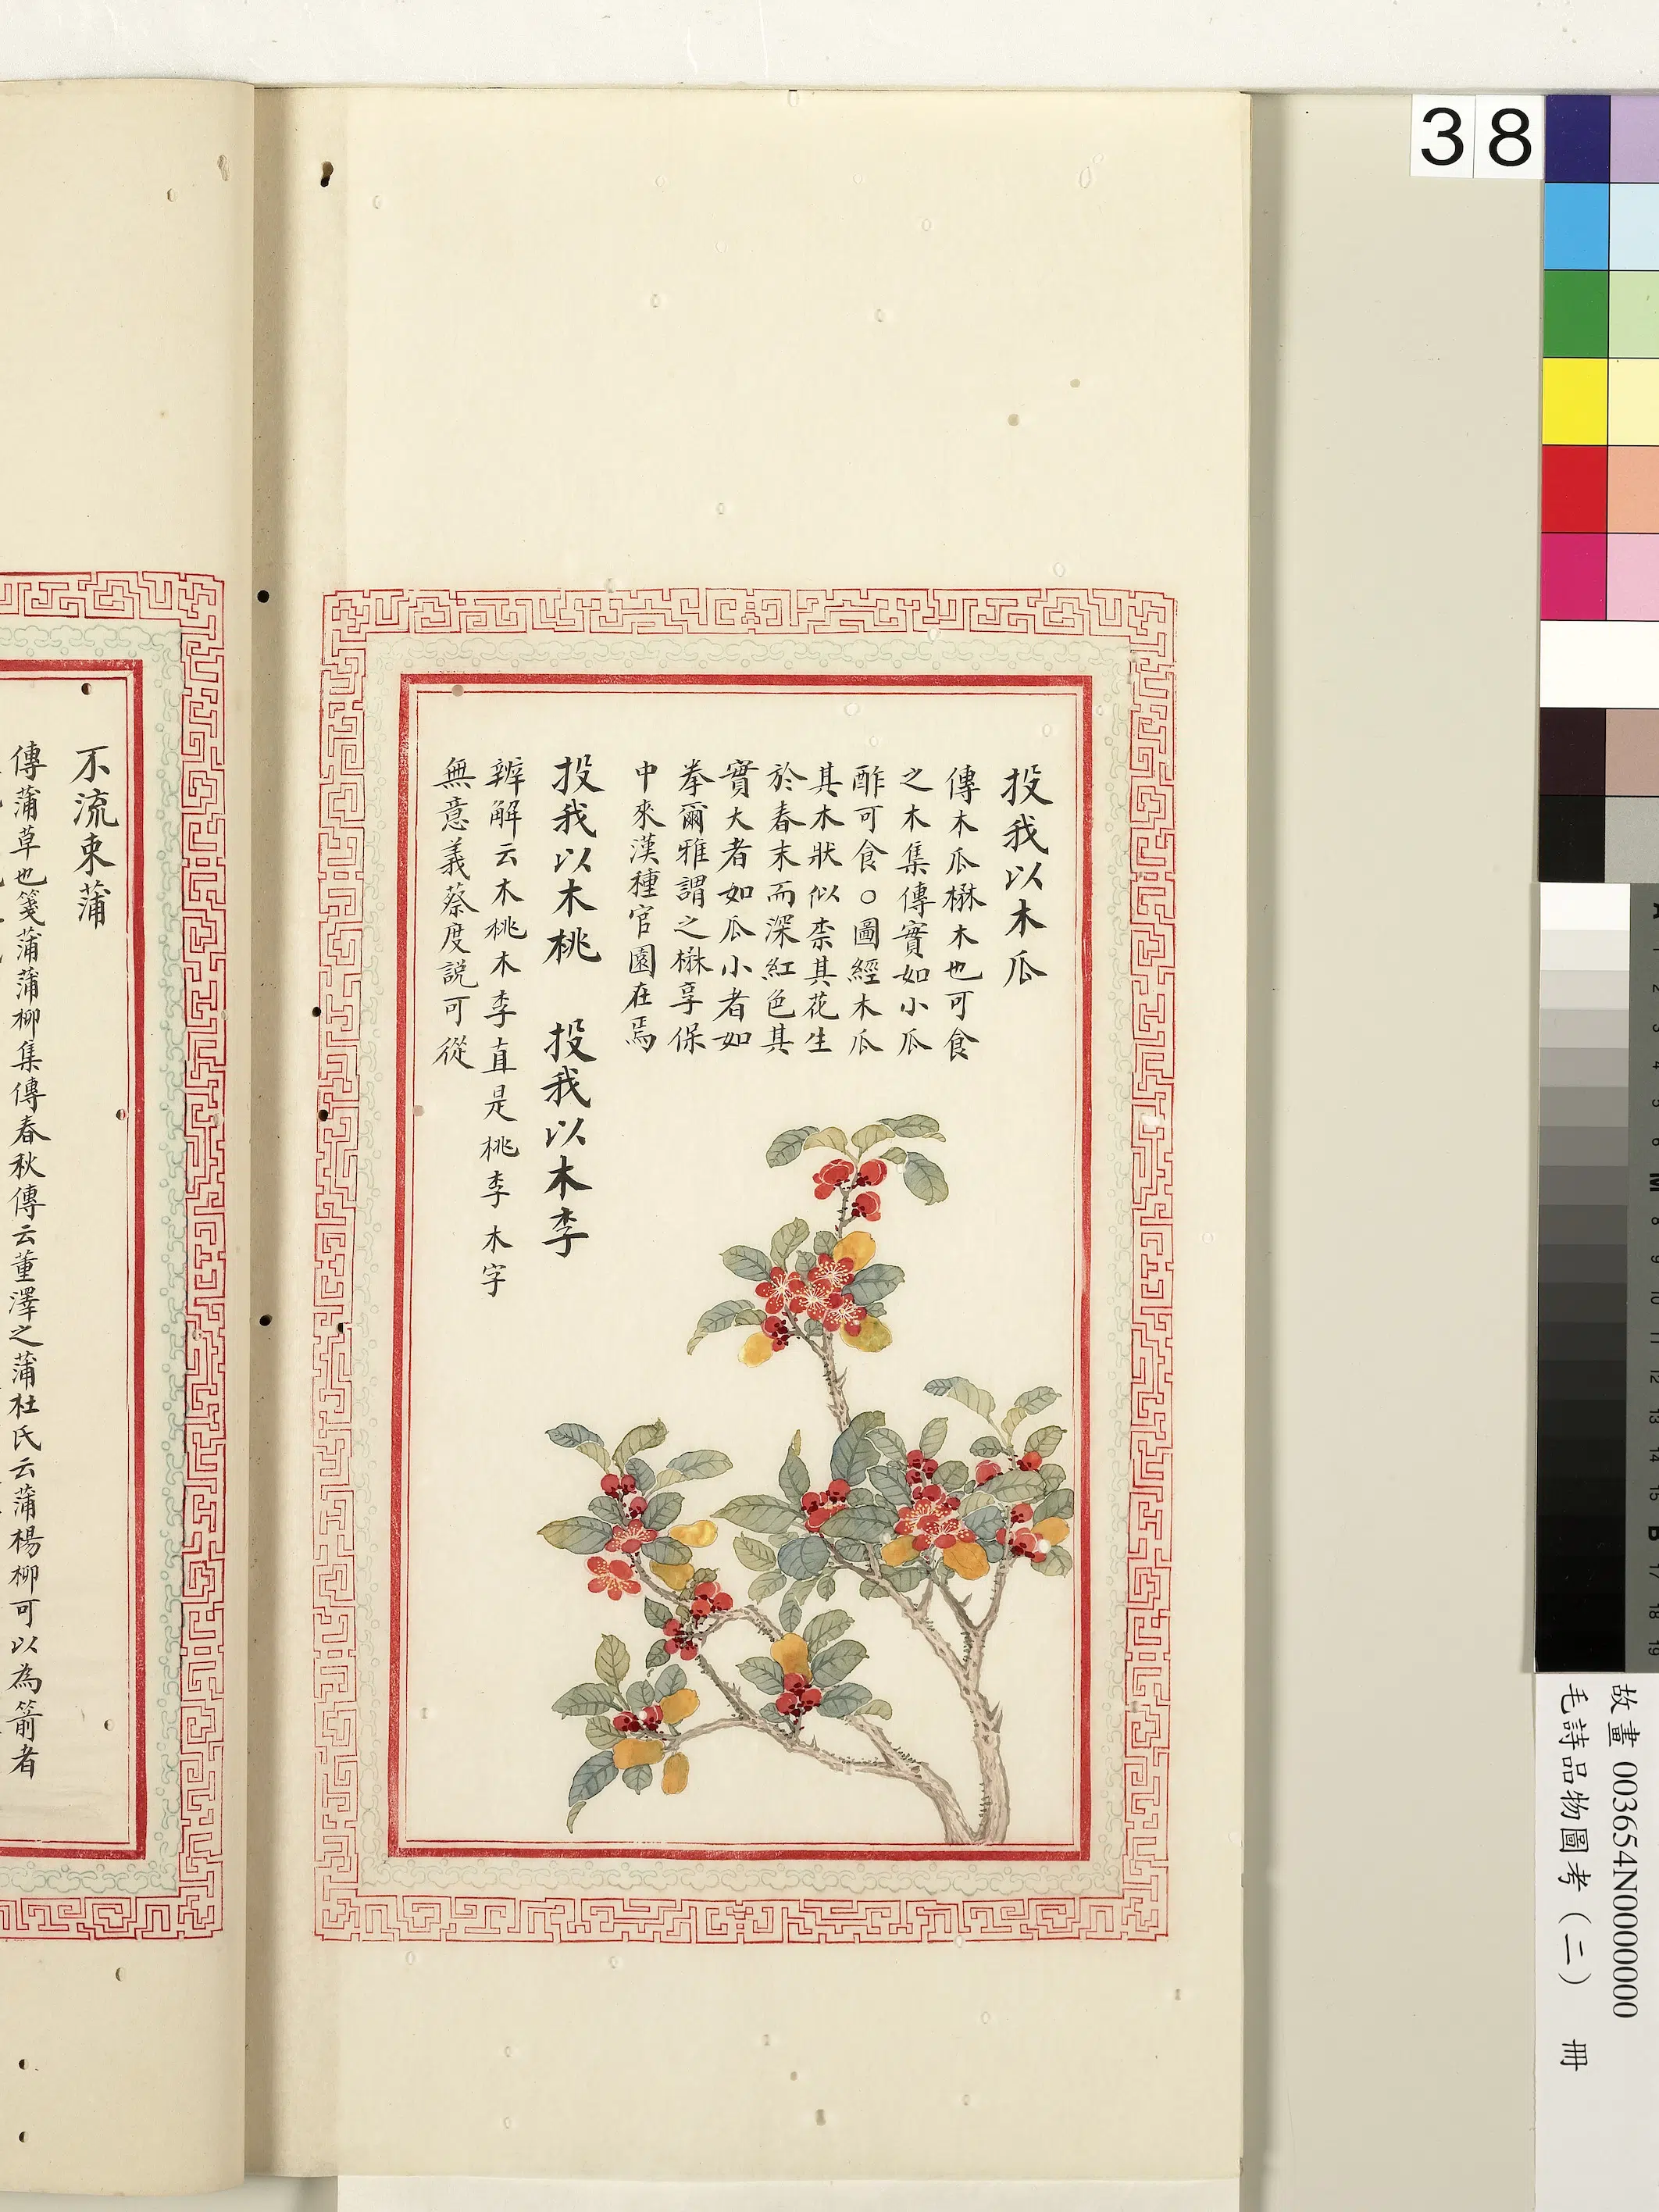 投我以木瓜
傳木瓜楙木也可食
之木集傳實如小瓜
酢可食○圖經木瓜
其木狀似柰其花生
於春末而深紅色其
實大者如瓜小者如
拳爾雅謂之楙享保
中來漢種官園在焉
投我以木桃 投我以木李
辨解云木桃木李直是桃李木字
無意義蔡度説可從
不流束蒲
傳蒲草也箋蒲蒲柳集傳春秋傳云董澤之蒲杜氏云蒲楊柳可以為箭者
38
故畫003654N000000000
毛詩品物圖考(二) 冊